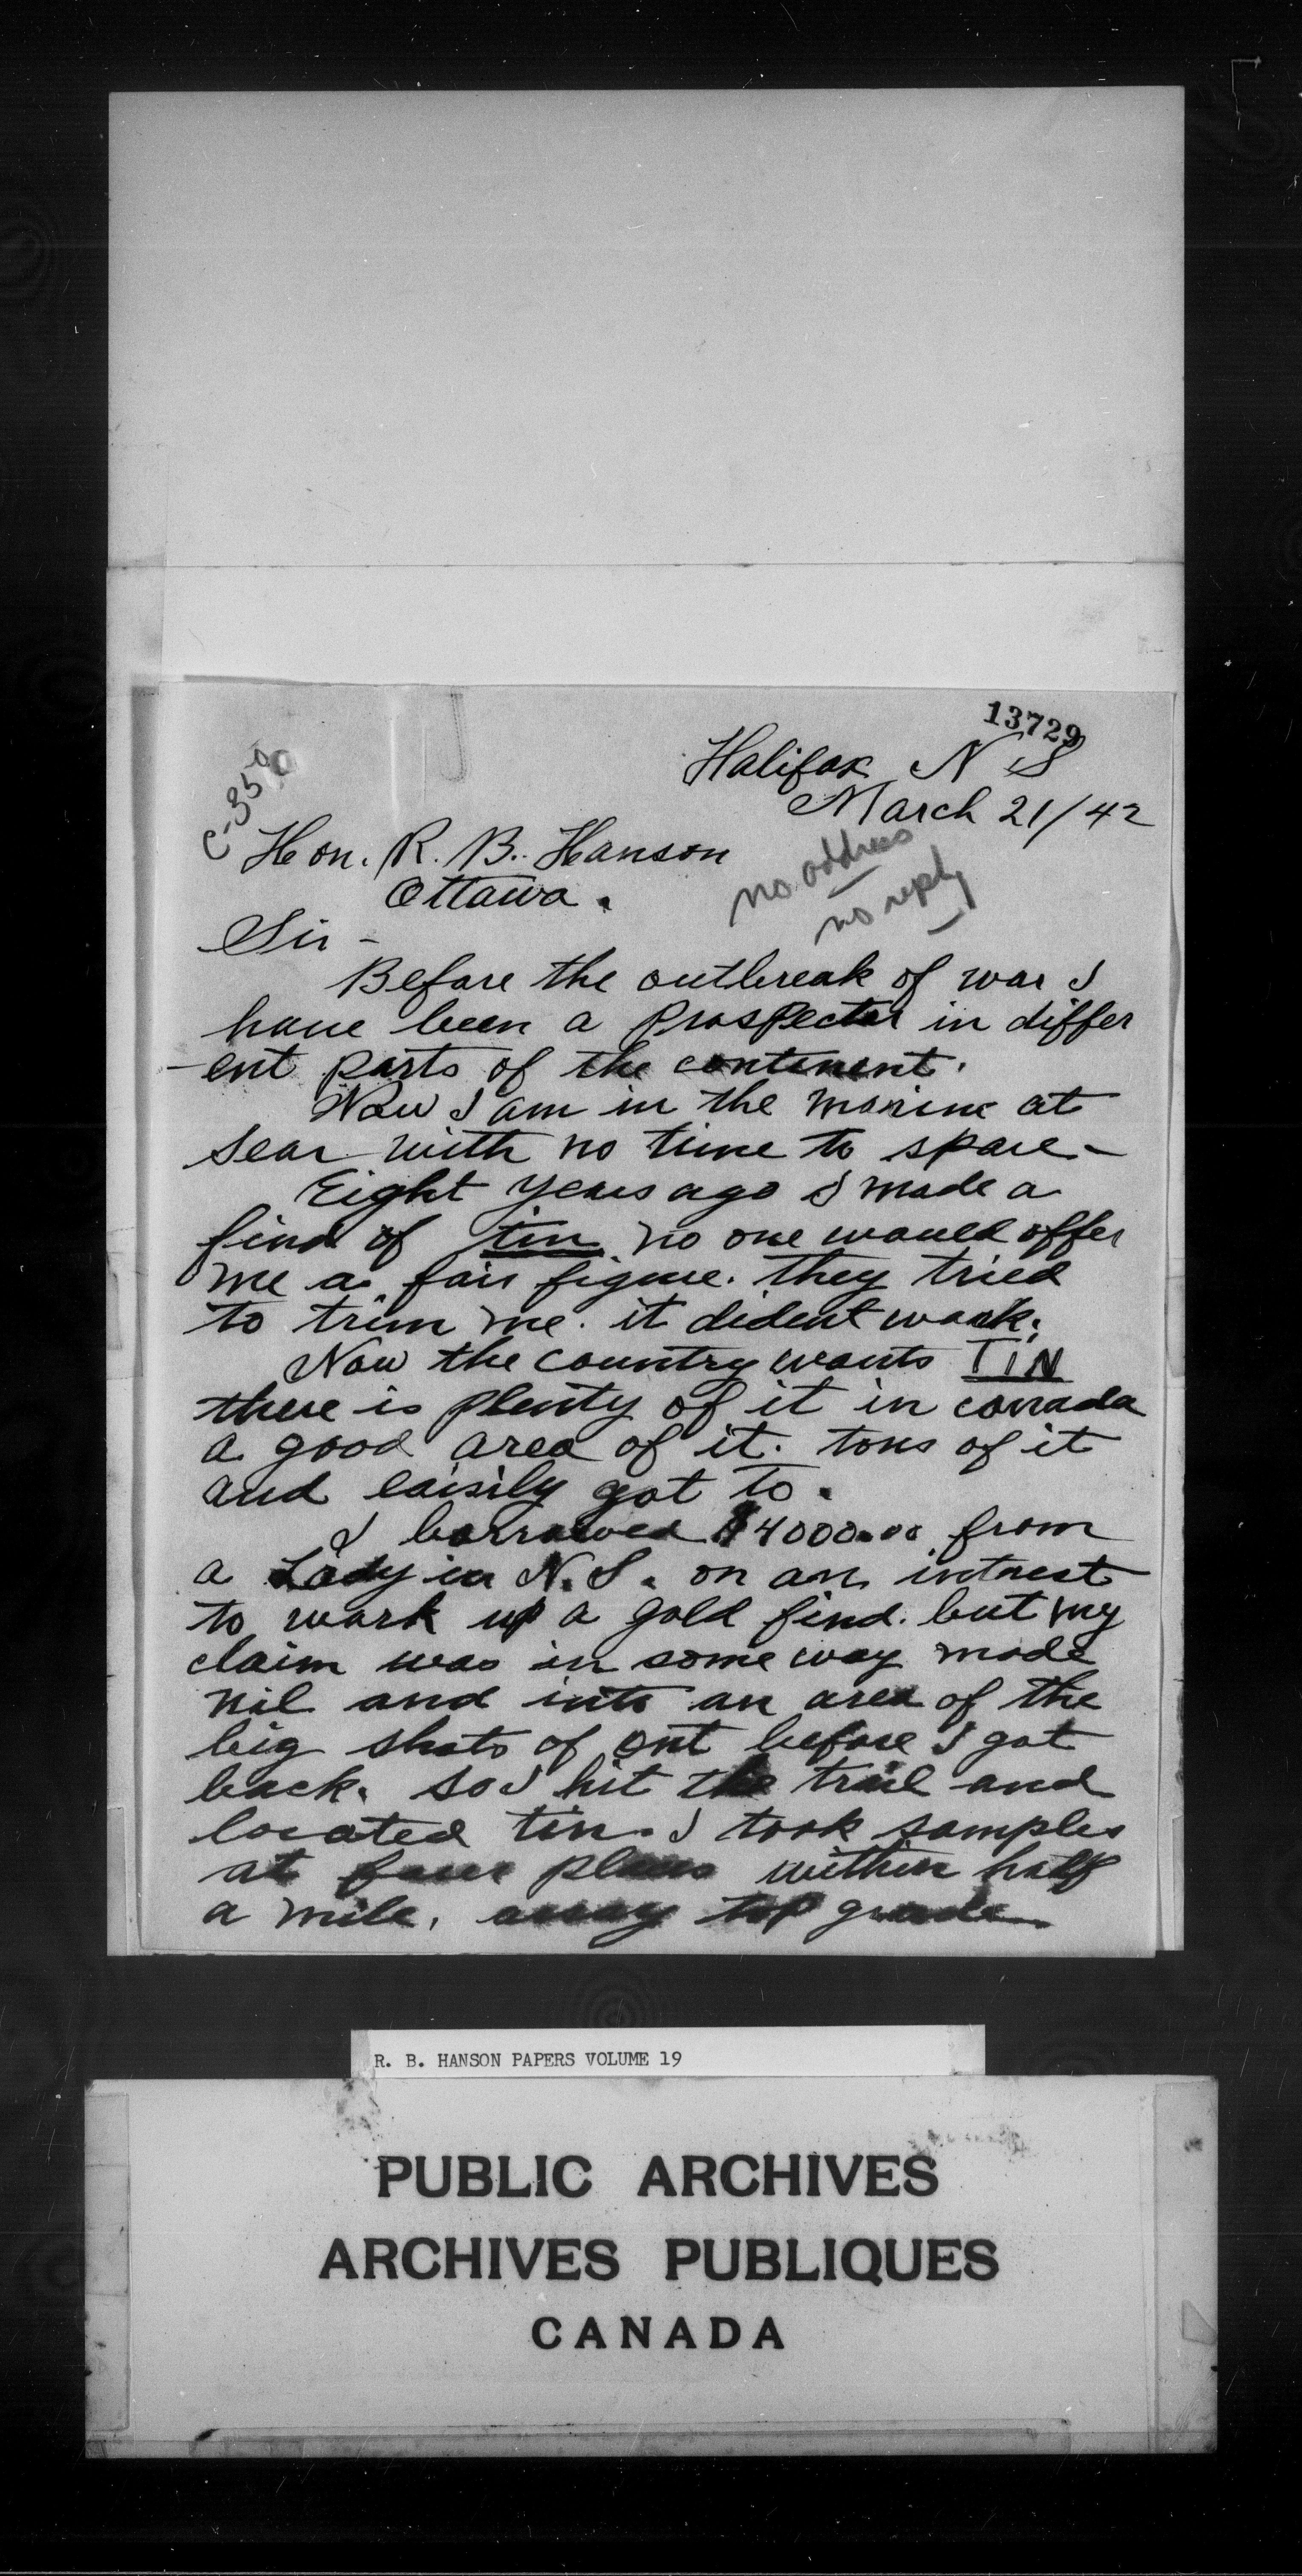 13729
Halifax N S
March 21/42
C-350
Hon. R. B. Hanson
Ottawa.
no address
no reply
Sir -
Before the outbreak of war I
have been a prospector in differ
-ent parts of the contenent.
Now I am in the marine at
sea with no time to spare -
Eight years ago I made a
find of tin no one would offer
me a fair figure. they tried
to trim me. it dident work.
Now the country wants TIN
there is plenty of it in canada
a good area of it. tons of it
and eaisily got to.
I borrowed $4000.00 from
a Lady in N.S. on an intrest
to work up a gold find. but my
claim was in some way made
nil and into an area of the
big shots of ont before I got
back. so I hit the trail and
located tin. I took samples
at four places within half
a mile, assay top grade
R. B. HANSON PAPERS VOLUME 19
PUBLIC ARCHIVES
ARCHIVES PUBLIQUES
CANADA